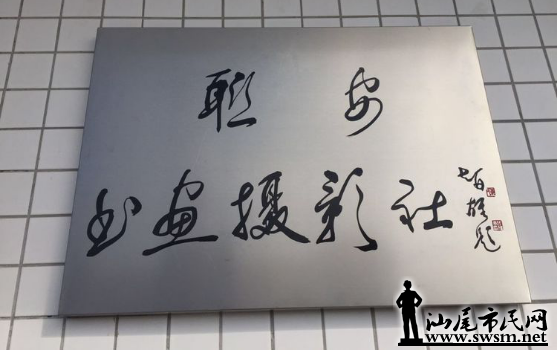 联安
书画摄影社
汕尾市民网
www.swsm.net